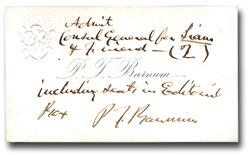 Admit
Consul General for Siam
& friend — (2)
P. T. Barnum
including seats in Editorial
Box P T Barnum